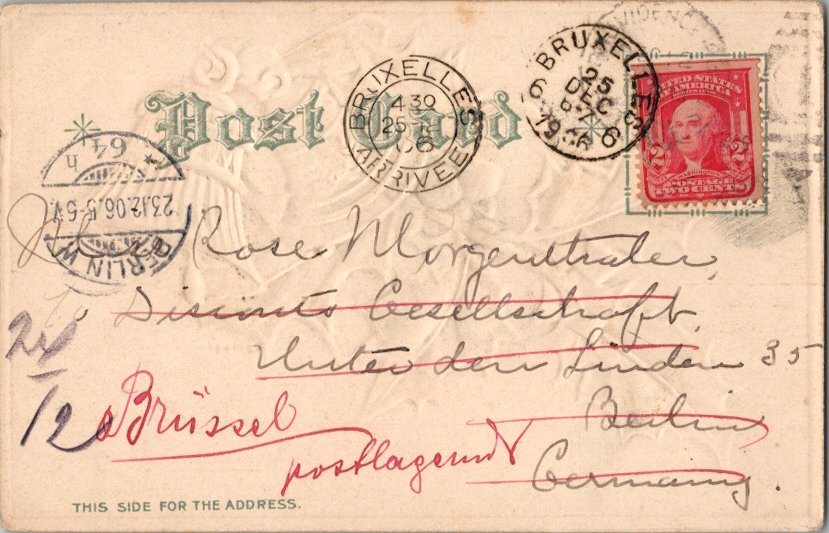 Post Card
BRUXELLES
4 30
25
06
ARRIVEE
BRUXELLES
25
DEC
1906
6
UNITED STATES
OF AMERICA
2 2
WASHINGTON
POSTAGE
TWO CENTS
64
h
23.12.06.5-6V.
BERLIN W.
Rose Morgenthaler,
Disconto Gesellschaft,
Unter den Linden 35
Berlin
Germany.
24
/12
Brüssel
postlagernd
THIS SIDE FOR THE ADDRESS.